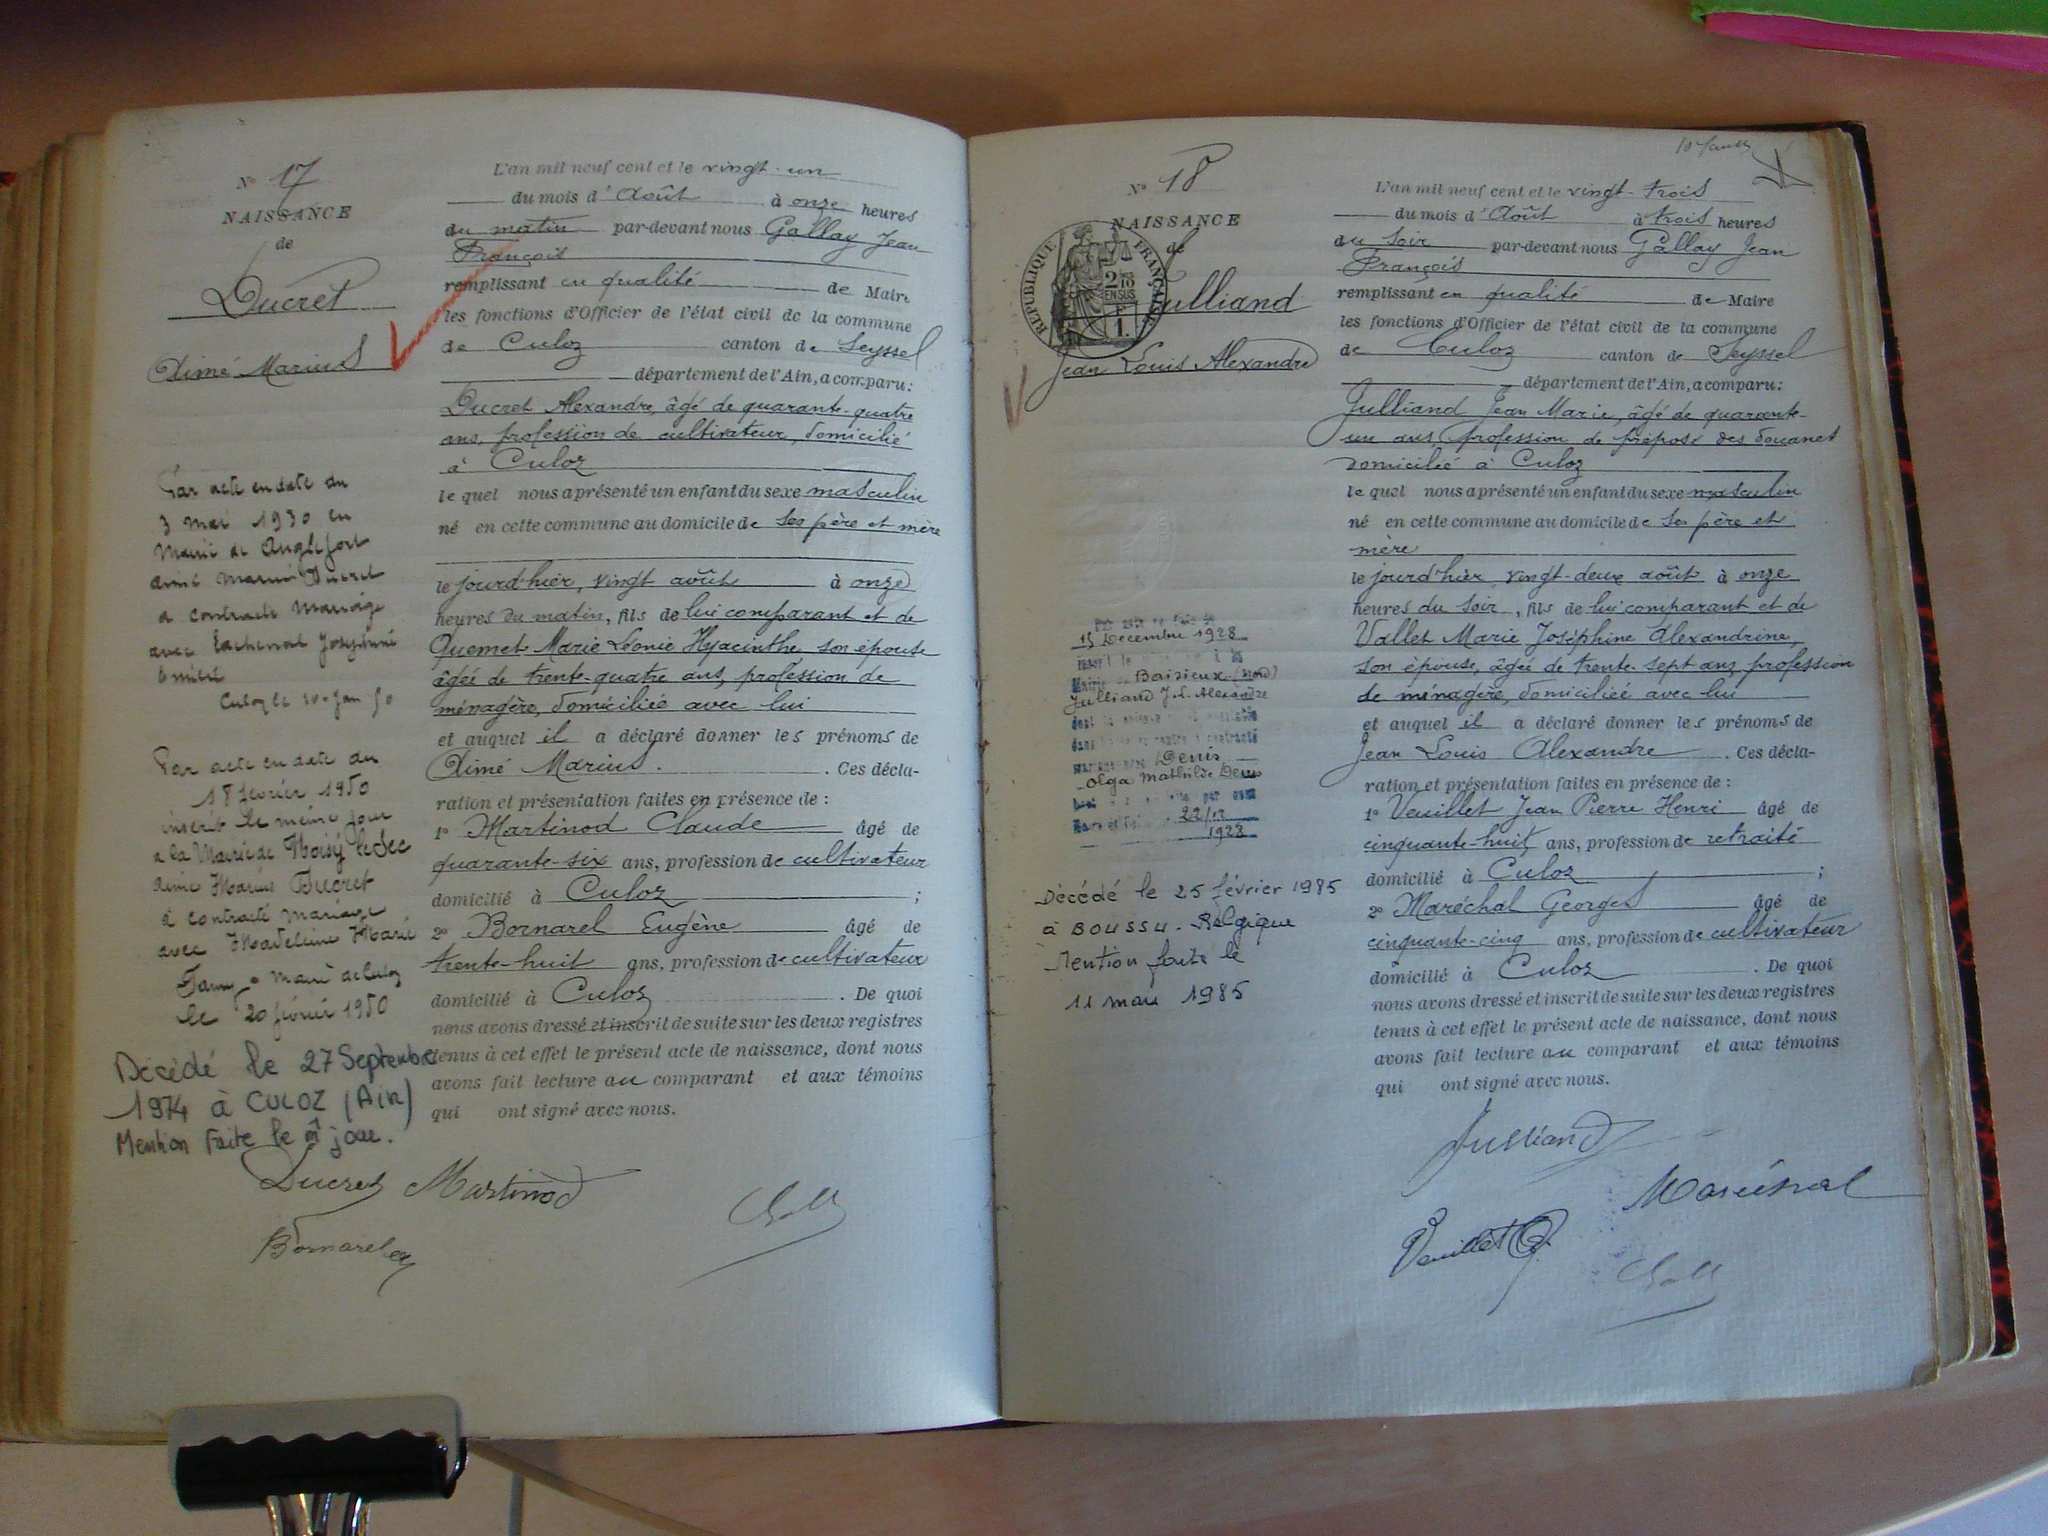 N° 17
NAISSANCE
de
Ducret
Aimé Marius
Par acte en date du
3 mai 1930 en
Mairie de Anglefort
Aimé Marius Ducret
a contracté Mariage
avec Lachenal Joséphine
Culoz le
Par acte en date du
18 février 1950
inscrit le même jour
a la Mairie de Noisy le Sec
Aimé Marius Ducret
a contracté mariage
avec Madeleine Marie
le 20 février 1950
Décédé le 27 Septembre
1974 à CULOZ (Ain)
Mention faite le m jour.
L'an mil neuf cent et le vingt-un
du mois d'Août à onze heures
du matin par-devant nous Gallay Jean
François
remplissant en qualité de Maire
les fonctions d'Officier de l'état civil de la commune
de Culoz canton de Seyssel
département de l'Ain, a comparu:
Ducret Alexandre, âgé de quarante-quatre
ans, profession de cultivateur, domicilié
à Culoz
le quel nous a présenté un enfant du sexe masculin
né en cette commune au domicile de ses père et mère
le jourd'hier, vingt août à onze
heures du matin, fils de lui comparant et de
Quemet Marie Léonie Hyacinthe son épouse
âgée de trente-quatre ans, profession de
ménagère, domiciliée avec lui
et auquel il a déclaré donner les prénoms de
Aimé Marius. . Ces décla-
ration et présentation faites en présence de :
1° Martinod Claude âgé de
quarante-six ans, profession de cultivateur
domicilié à Culoz ;
2° Bornarel Eugène âgé de
trente-huit ans, profession de cultivateur
domicilié à Culoz . De quoi
nous avons dressé et inscrit de suite sur les deux registres
tenus à cet effet le présent acte de naissance, dont nous
avons fait lecture au comparant et aux témoins
qui ont signé avec nous.
Ducret Martinod
Bornarel
N° 18
NAISSANCE
de
RÉPUBLIQUE FRANÇAISE
2/10
EN SUS
1F
Julliand
Jean Louis Alexandre
15 Decembre 1928
Mairie de Baisieux (Nord)
Julliand J. L. Alexandre
Denis
Olga Mathilde Denis
22/12
1928
Décédé le 25 février 1985
à BOUSSU - Belgique
Mention faite le
11 mars 1985
L'an mil neuf cent et le vingt-trois
du mois d'Août à trois heures
du soir par-devant nous Gallay Jean
François
remplissant en qualité de Maire
les fonctions d'Officier de l'état civil de la commune
de Culoz canton de Seyssel
département de l'Ain, a comparu:
Julliand Jean Marie, âgé de quarante-
un ans, profession de préposé des douanes
domicilié à Culoz
le quel nous a présenté un enfant du sexe masculin
né en cette commune au domicile de ses père et
mère
le jourd'hier vingt-deux août à onze
heures du soir, fils de lui comparant et de
Vallet Marie Joséphine Alexandrine,
son épouse, âgée de trente-sept ans, profession
de ménagère, domiciliée avec lui
et auquel il a déclaré donner les prénoms de
Jean Louis Alexandre . Ces décla-
ration et présentation faites en présence de :
1° Veuillet Jean Pierre Henri âgé de
cinquante-huit ans, profession de retraité
domicilié à Culoz ;
2° Maréchal Georges âgé de
cinquante-cinq ans, profession de cultivateur
domicilié à Culoz . De quoi
nous avons dressé et inscrit de suite sur les deux registres
tenus à cet effet le présent acte de naissance, dont nous
avons fait lecture au comparant et aux témoins
qui ont signé avec nous.
Julliand
Maréchal
Veuillet